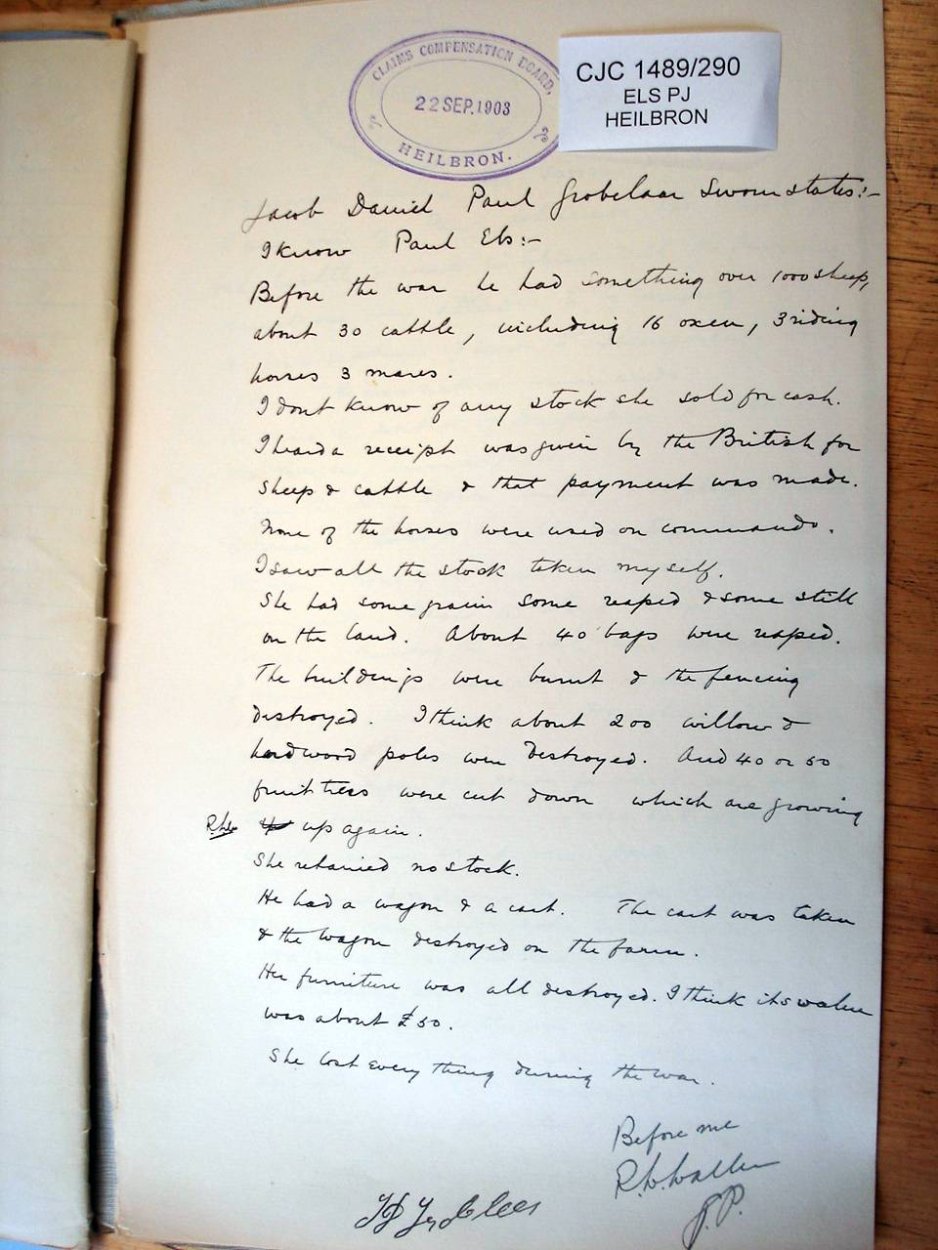 CLAIMS COMPENSATION BOARD,
22 SEP. 1903
HEILBRON.
CJC 1489/290
ELS PJ
HEILBRON
Jacob Daniel Paul Grobelaar Sworn states:-
I know Paul Els:-
Before the war he had something over 1000 sheep,
about 30 cattle, including 16 oxen, 3 riding
horses 3 mares.
I dont know of any stock she sold for cash.
I heard a receipt was given by the British for
sheep & cattle & that payment was made.
None of the horses were used on commando.
I saw all the stock taken myself.
She had some grain some reaped & some still
on the land. About 40 bags were reaped.
The buildings were burnt & the fencing
destroyed. I think about 200 willow &
hardwood poles were destroyed. And 40 or 50
fruit trees were cut down which are growing
up again.
She retained no stock.
He had a wagon & a cart. The cart was taken
& the wagon destroyed on the farm.
Her furniture was all destroyed. I think its value
was about £50.
She lost everything during the war.
Before me
J.P.